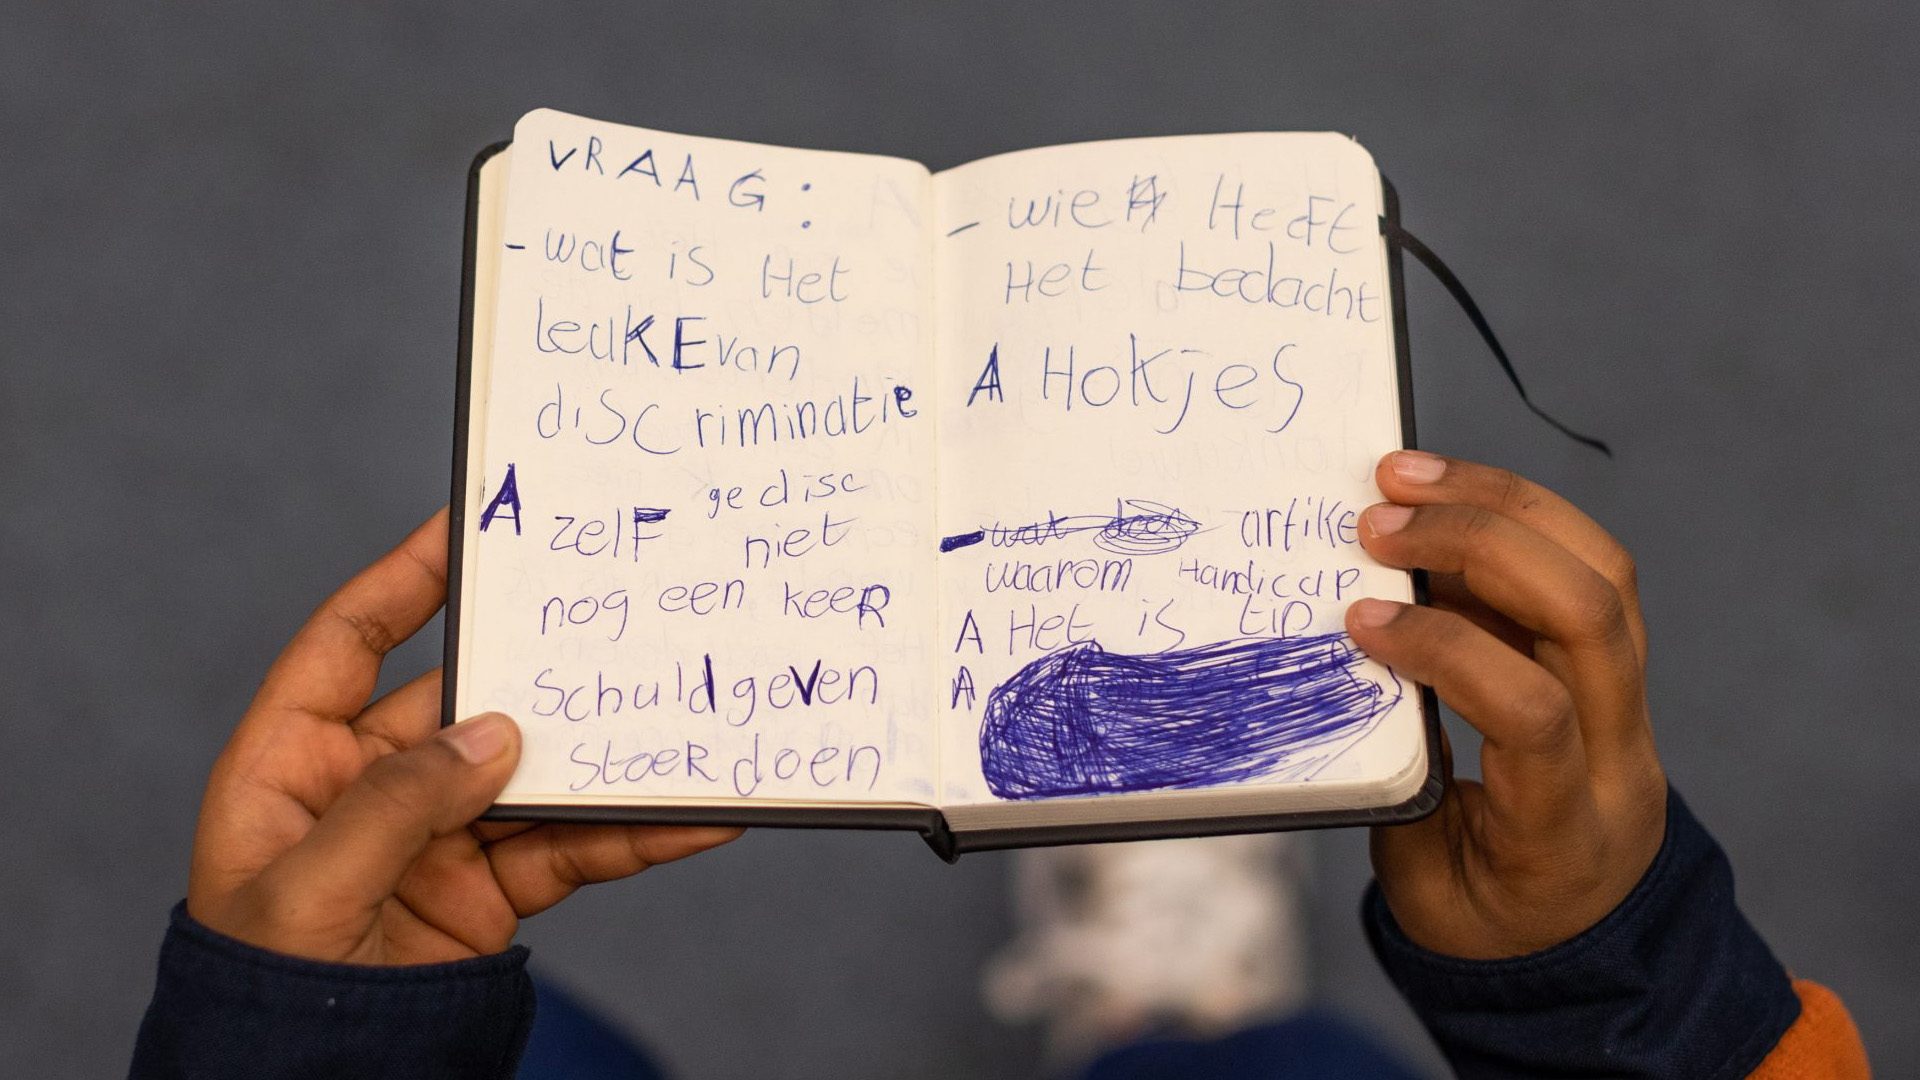 VRAAG:
- wat is Het
leuKE van
diSCriminatie
A gedisc
zelF niet
nog een keeR
Schuld geven
StoeR doen
- wie HeeFt
Het bedacht
A Hokjes
- wat doen artike
waarom Handicap
A Het is tip
A